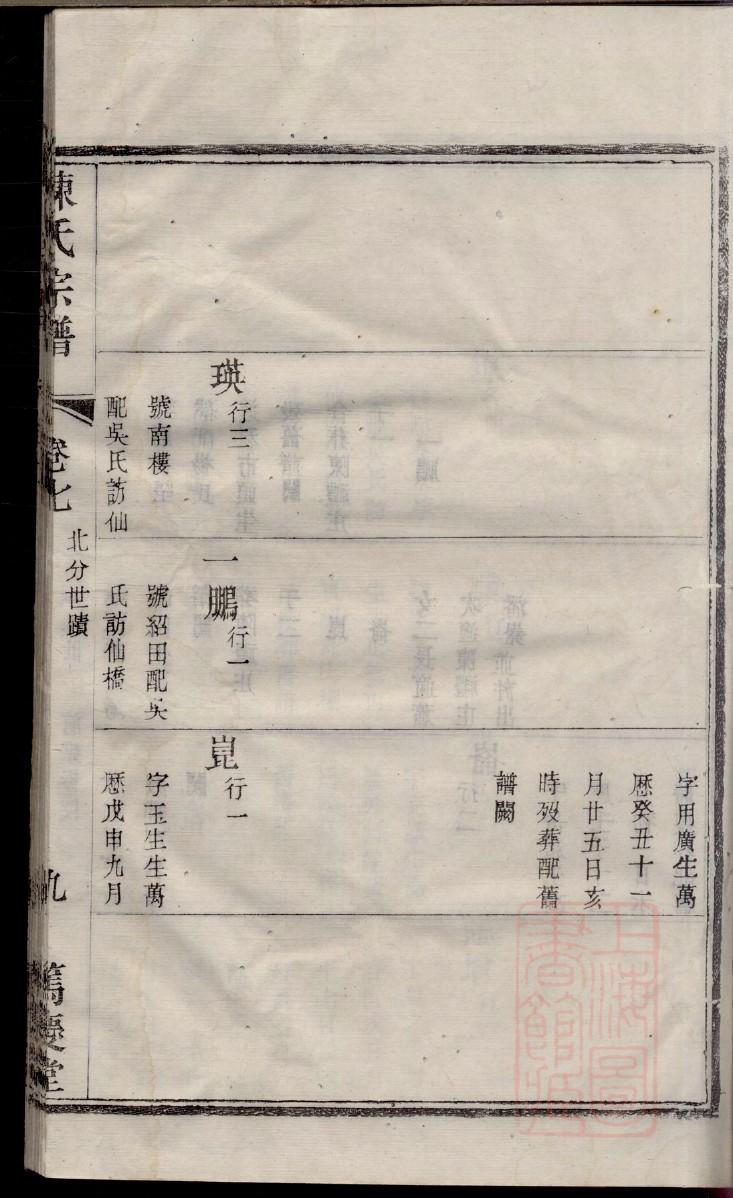 字用廣生萬
歷癸丑十一
月廿五日亥
時歿葬配舊
譜闕
瑛行三
號南樓
配吳氏訪仙
一鵬行一
號紹田配吳
氏訪仙橋
崑行一
字玉生生萬
歷戊申九月
陳氏宗譜
卷七
北分世蹟
九
篤慶堂
上海圖
書館藏